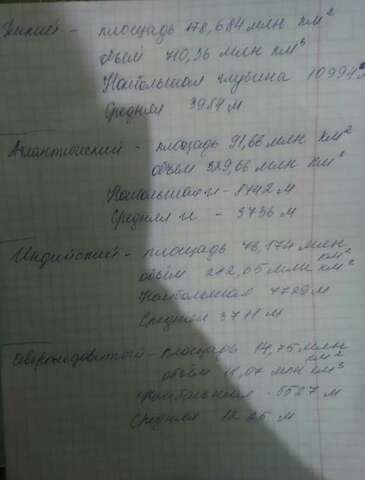 Тихий - площадь 178,684 млн км²
объём 710,36 млн км³
Наибольшая глубина 10994м
Средняя 3984 м
Атлантический - площадь 91,66 млн км²
объём 329,66 млн км³
Наибольшая г - 8742 м
Средняя г - 3736 м
Индийский - площадь 76,174 млн км²
объём 282,65 млн км³
Наибольшая 7729 м
Средняя 3711 м
Северноледовитый - площадь 14,75 млн км²
объём 18,07 млн км³
Наибольшая - 5527 м
Средняя 1225 м